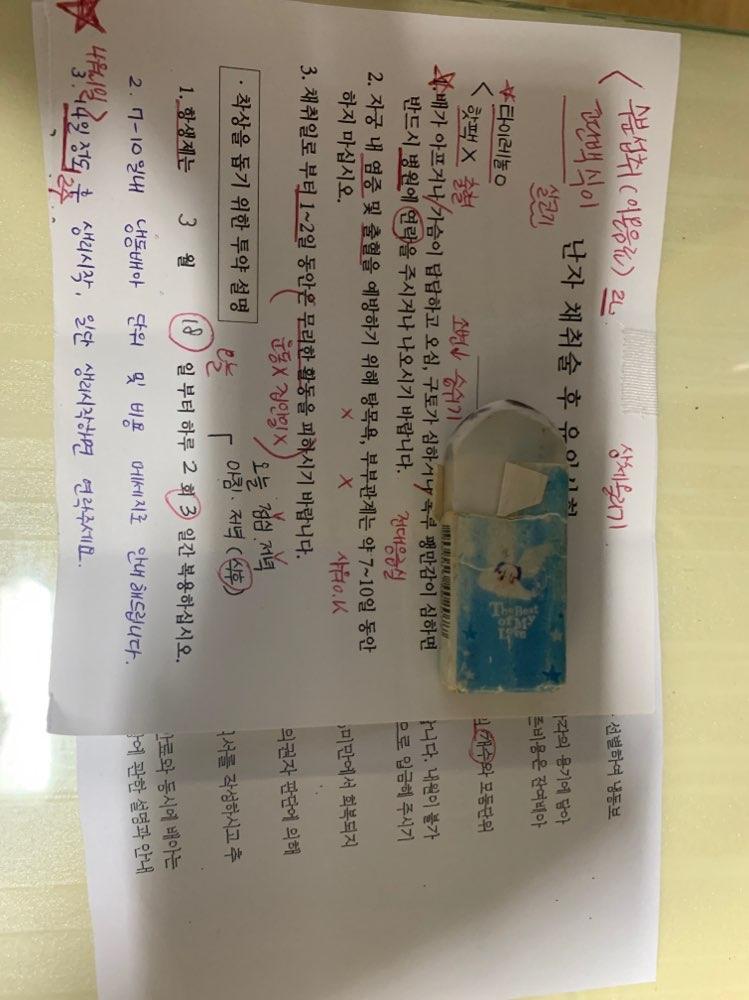 난자 채취술 후
단백식이
살코기
상체올리기
*타이레놀 O
핫팩 X 출혈
소변↓ 숨쉬기
1. 배가 아프거나/가슴이 답답하고 오심, 구토가 심하거나 복부 팽만감이 심하면
반드시 병원에 연락을 주시거나 나오시기 바랍니다.
2. 자궁 내 염증 및 출혈을 예방하기 위해 탕목욕, 부부관계는 약 7~10일 동안
하지 마십시오.
X X
샤워O.K
3. 채취일로 부터 1~2일 동안은 무리한 활동을 피하시기 바랍니다.
운동X 집안일X
· 착상을 돕기 위한 투약 설명
오늘 점심. 저녁
아침. 저녁 (식후)
1. 항생제는 3 월 18 일부터 하루 2 회 3 일간 복용하십시오.
2. 7-10일내 냉동배아 단위 및 비용 메세지로 안내 해드립니다.
3. 14일 정도 후 생리시작, 일단 생리시작하면 연락주세요.
The Best
of My
Love
선별하여 냉동보
각의 용기에 담아
존비용은 잔여배아
개수와 보통단위
니다. 내원이 불가
으로 입금해 주시기
의권자 판단에 의해
서를 작성하시고 추
료와 동시에 배아는
에 관한 설명과 안내